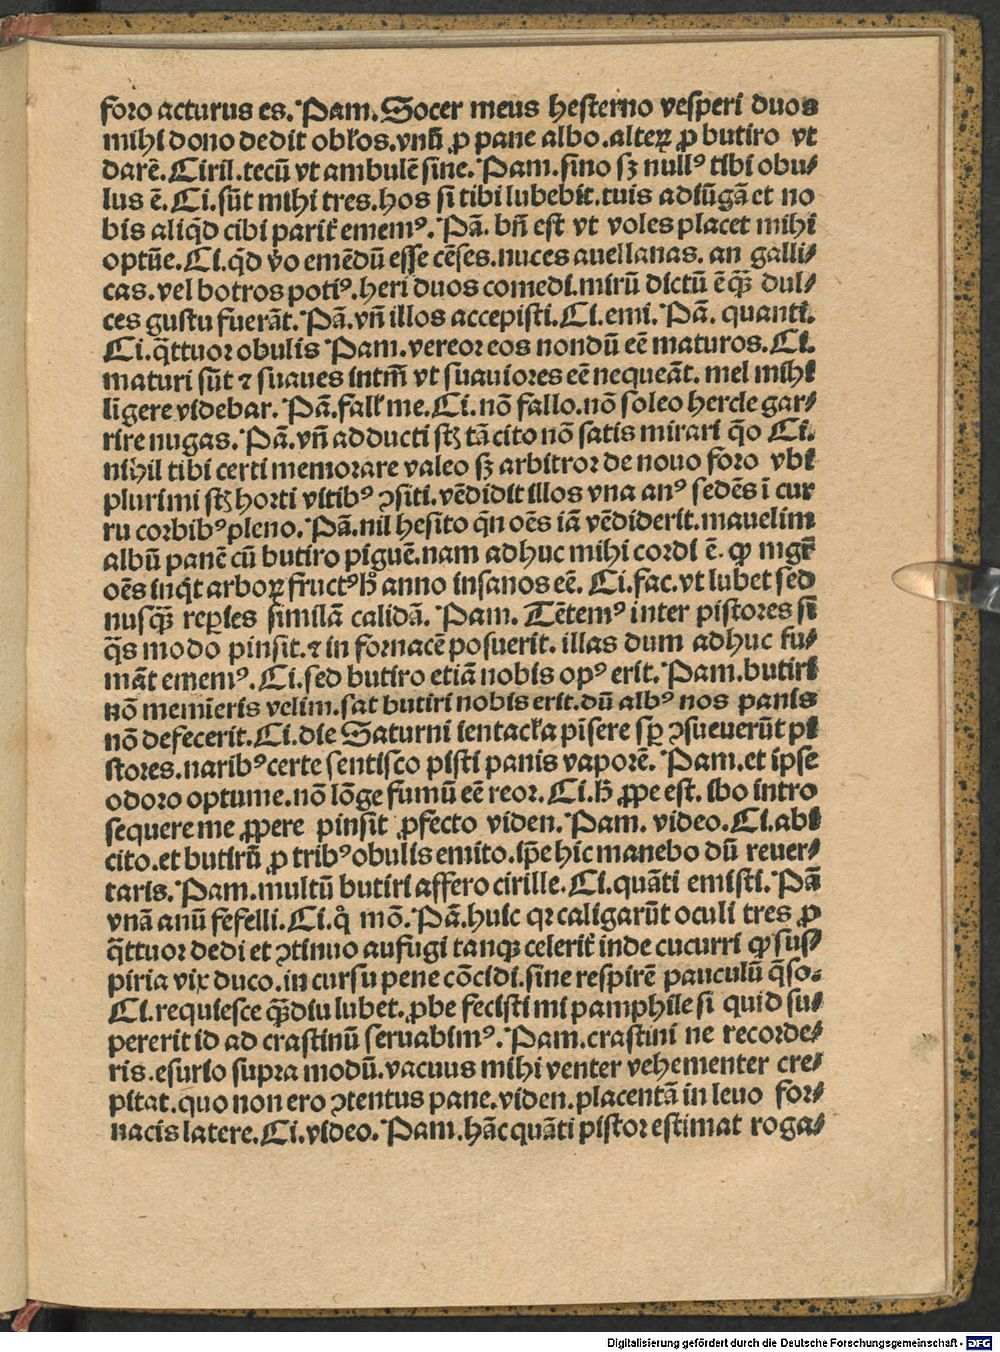 foro acturus es. Pam. Socer meus hesterno vesperi duos
mihi dono dedit obłos. vnū ꝓ pane albo. alteꝝ ꝓ butiro vt
darē. Ciril. tecū vt ambulē sine. Pam. sino sꝫ nullꝰ tibi obu⸗
lus ē. Ci. sūt mihi tres. hos si tibi lubebit. tuis adiūgā et no
bis aliqd̄ cibi parit̄ ememꝰ. Pā. bn̄ est vt voles placet mihi
optūe. Ci. qd̄ vo᷒ emēdū esse cēses. nuces auellanas. an galli⸗
cas. vel botros potiꝰ. heri duos comedi. mirū dictū ē qꝫ̄ dul⸗
ces gustu fuerāt. Pā. vn̄ illos accepisti. Ci. emi. Pā. quanti.
Ci. q̄ttuor obulis Pam. vereor eos nondū eē maturos. Ci.
maturi sūt ⁊ suaues intm̄ vt suauiores eē nequeāt. mel mihi
ligere videbar. Pā. fall̄ me. Ci. nō fallo. nō soleo hercle gar⸗
rire nugas. Pā. vn̄ adducti stꝫ tā cito nō satis mirari q̄o Ci.
nihil tibi certi memorare valeo sꝫ arbitror de nouo foro vbi
plurimi stꝫ horti vitibꝰ ꝯsiti. vēdidit illos vna anꝰ sedēs ī cur
ru corbibꝰ pleno. Pā. nil hesito qn̄ oēs iā vēdiderit. mauelim
albū panē cū butiro piguē. nam adhuc mihi cordi ē. ꝙ mgr̄
oēs inqt̄ arboꝝ fructꝰ h̄ anno insanos eē. Ci. fac. vt lubet sed
nusqꝫ̄ reꝑies similā calidā. Pam. Tētemꝰ inter pistores si
q̄s modo pinsit. ⁊ in fornacē posuerit. illas dum adhuc fu⸗
māt ememꝰ. Ci. sed butiro etiā nobis opꝰ erit. Pam. butiri
nō memieris velim. sat butiri nobis erit. dū albꝰ nos panis
nō defecerit. Ci. die Saturni ientacła pīsere sꝑ ꝯsueuerūt pi
stores. naribꝰ certe sentisco pisti panis vaporē. Pam. et ipse
odoro optume. nō lōge fumū eē reor. Ci. h̄ ꝓpe est. ibo intro
sequere me ꝓpere pinsit ꝓfecto viden. Pam. video. Ci. abi
cito. et butirū ꝓ tribꝰ obulis emito. ip̄e hic manebo dū reuer⸗
taris. Pam. multū butiri affero cirille. Ci. quāti emisti. Pā
vnā anū fefelli. Ci. q̊ mō. Pā. huic qꝛ caligarūt oculi tres ꝓ
q̄ttuor dedi et ꝯtinuo aufugi tanqꝫ celerit̄ inde cucurri ꝙ sus⸗
piria vix duco. in cursu pene cōcidi. sine respirē pauculū q̄so.
Ci. requiesce qꝫ̄diu lubet. ꝓbe fecisti mi pamphile si quid su⸗
pererit id ad crastinū seruabimꝰ. Pam. crastini ne recorde⸗
ris. esurio supra modū. vacuus mihi venter vehementer cre⸗
pitat. quo non ero ꝯtentus pane. viden. placentā in leuo for⸗
nacis latere. Ci. video. Pam. hāc quāti pistor estimat roga⸗
Digitalisierung gefördert durch die Deutsche Forschungsgemeinschaft - DFG